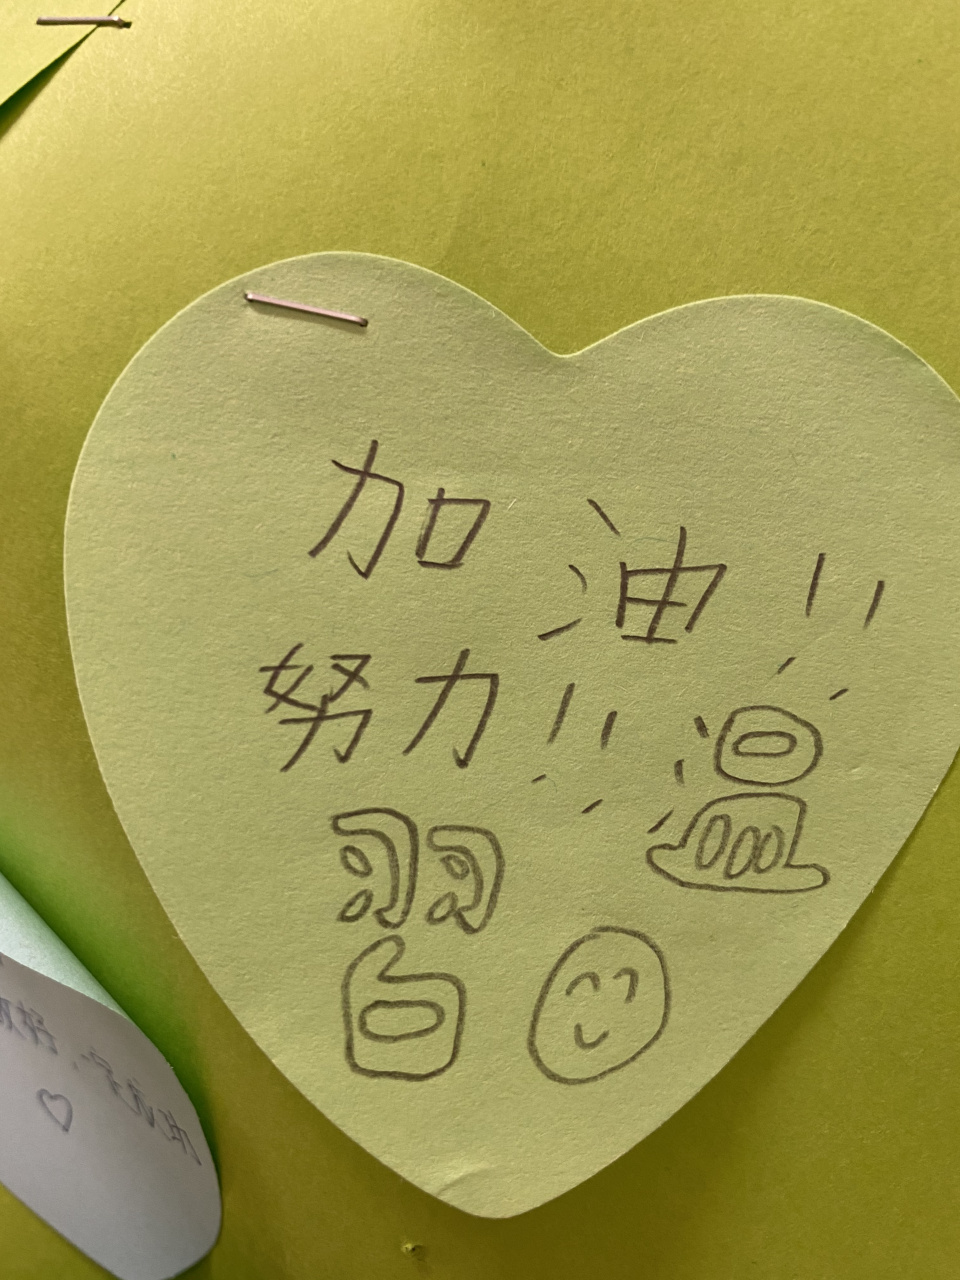 加油!!
努力!!
温
習